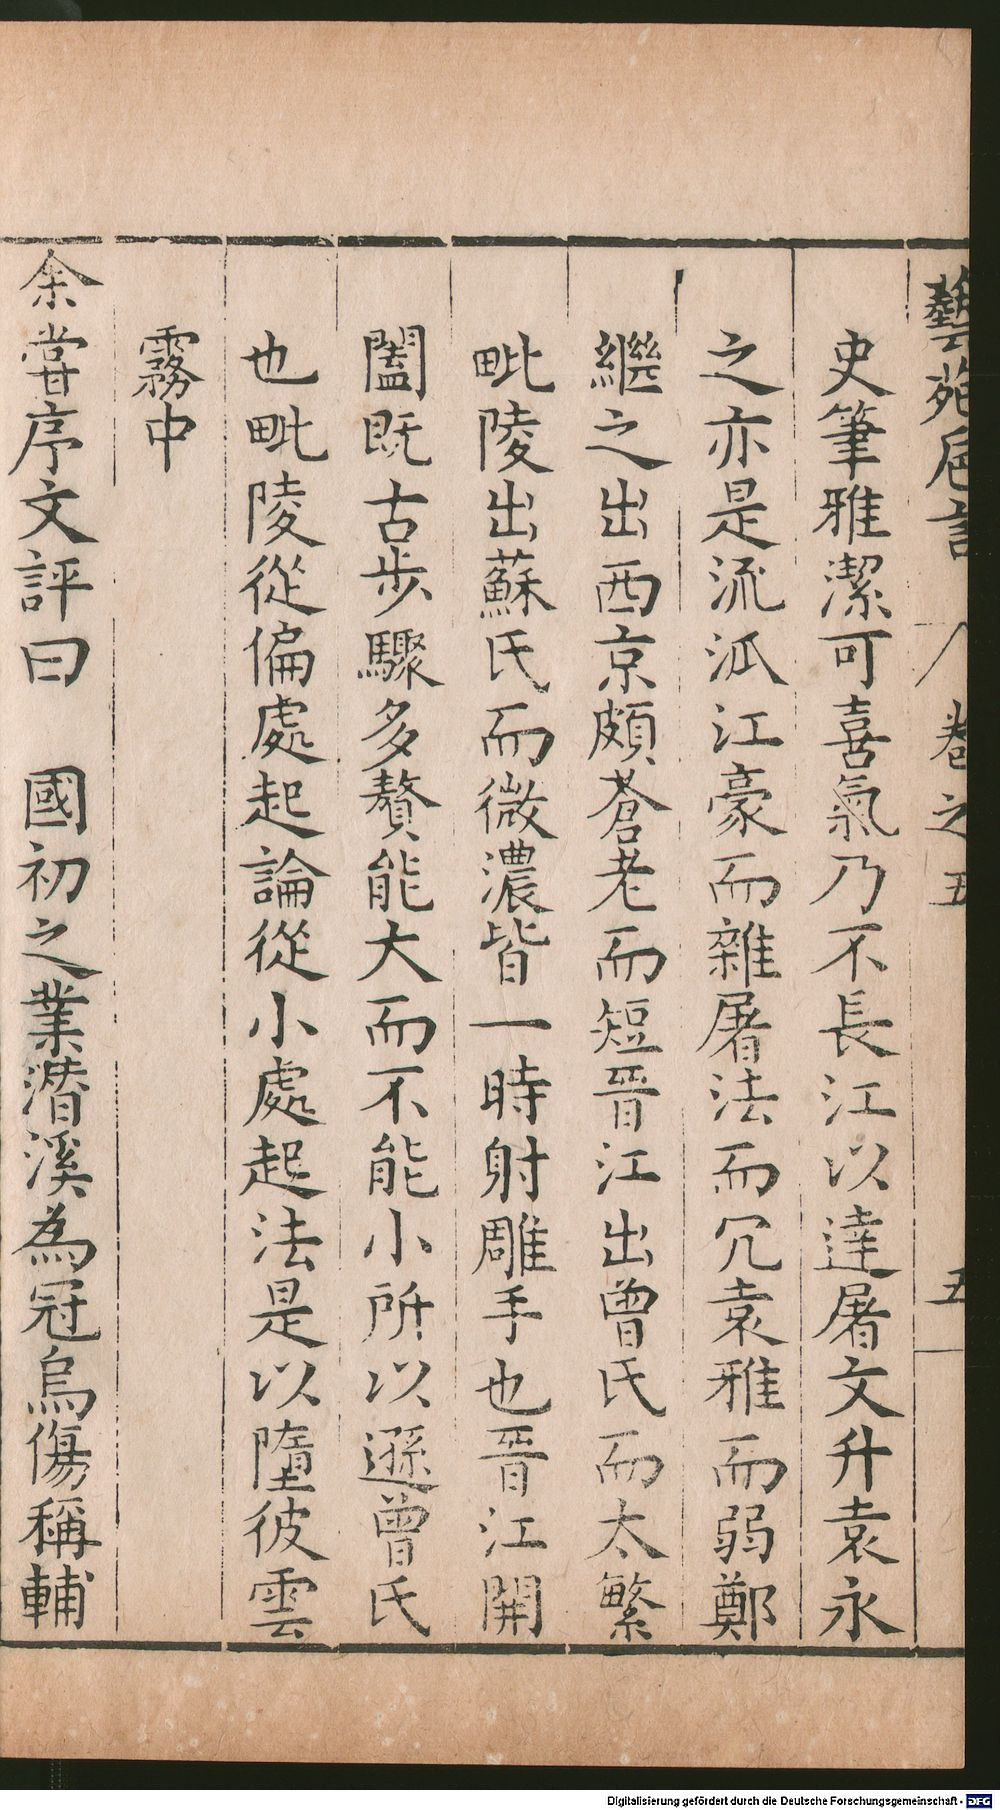 藝苑巵言 八 卷之五 五
史筆雅潔可喜氣乃不長江以達屠文升袁永
之亦是流派江豪而雜屠法而冗袁雅而弱鄭
繼之出西京頗蒼老而短晉江出曾氏而太繁
毗陵出蘇氏而微濃皆一時射雕手也晉江開
闔既古步驟多贅能大而不能小所以遜曾氏
也毗陵從偏處起論從小處起法是以墮彼雲
霧中
余嘗序文評曰 國初之業潛溪為冠烏傷稱輔
Digitalisierung gefördert durch die Deutsche Forschungsgemeinschaft - DFG